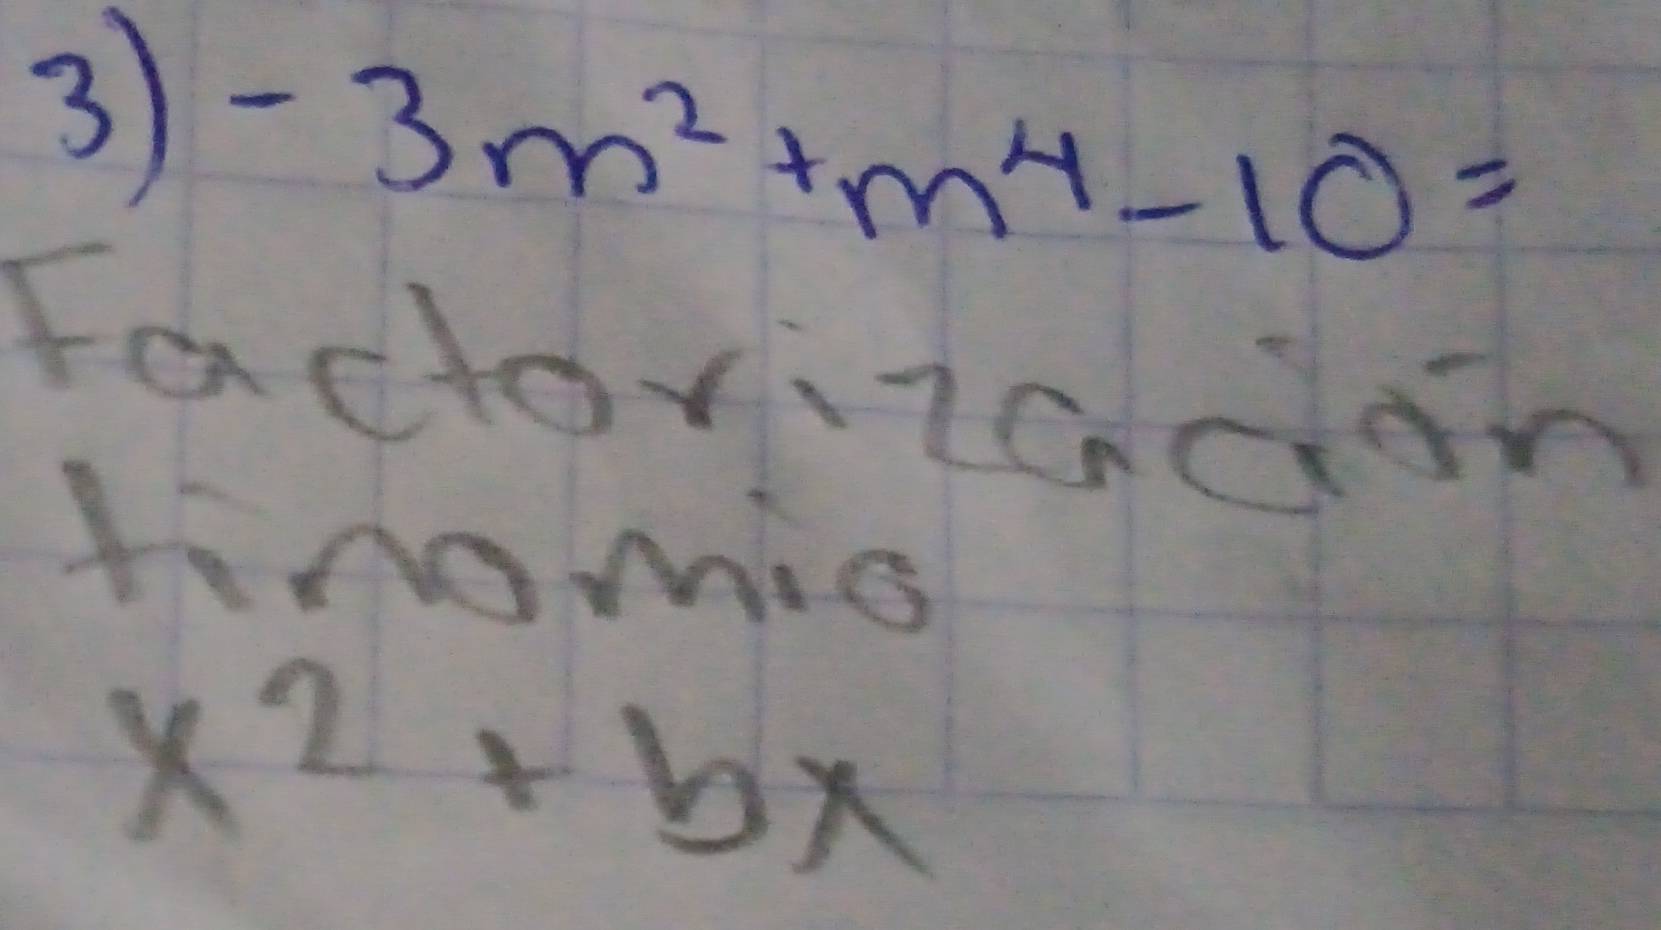 3) - 3m² + m⁴ - 10 =
Factorización
tinomio
x² + bx